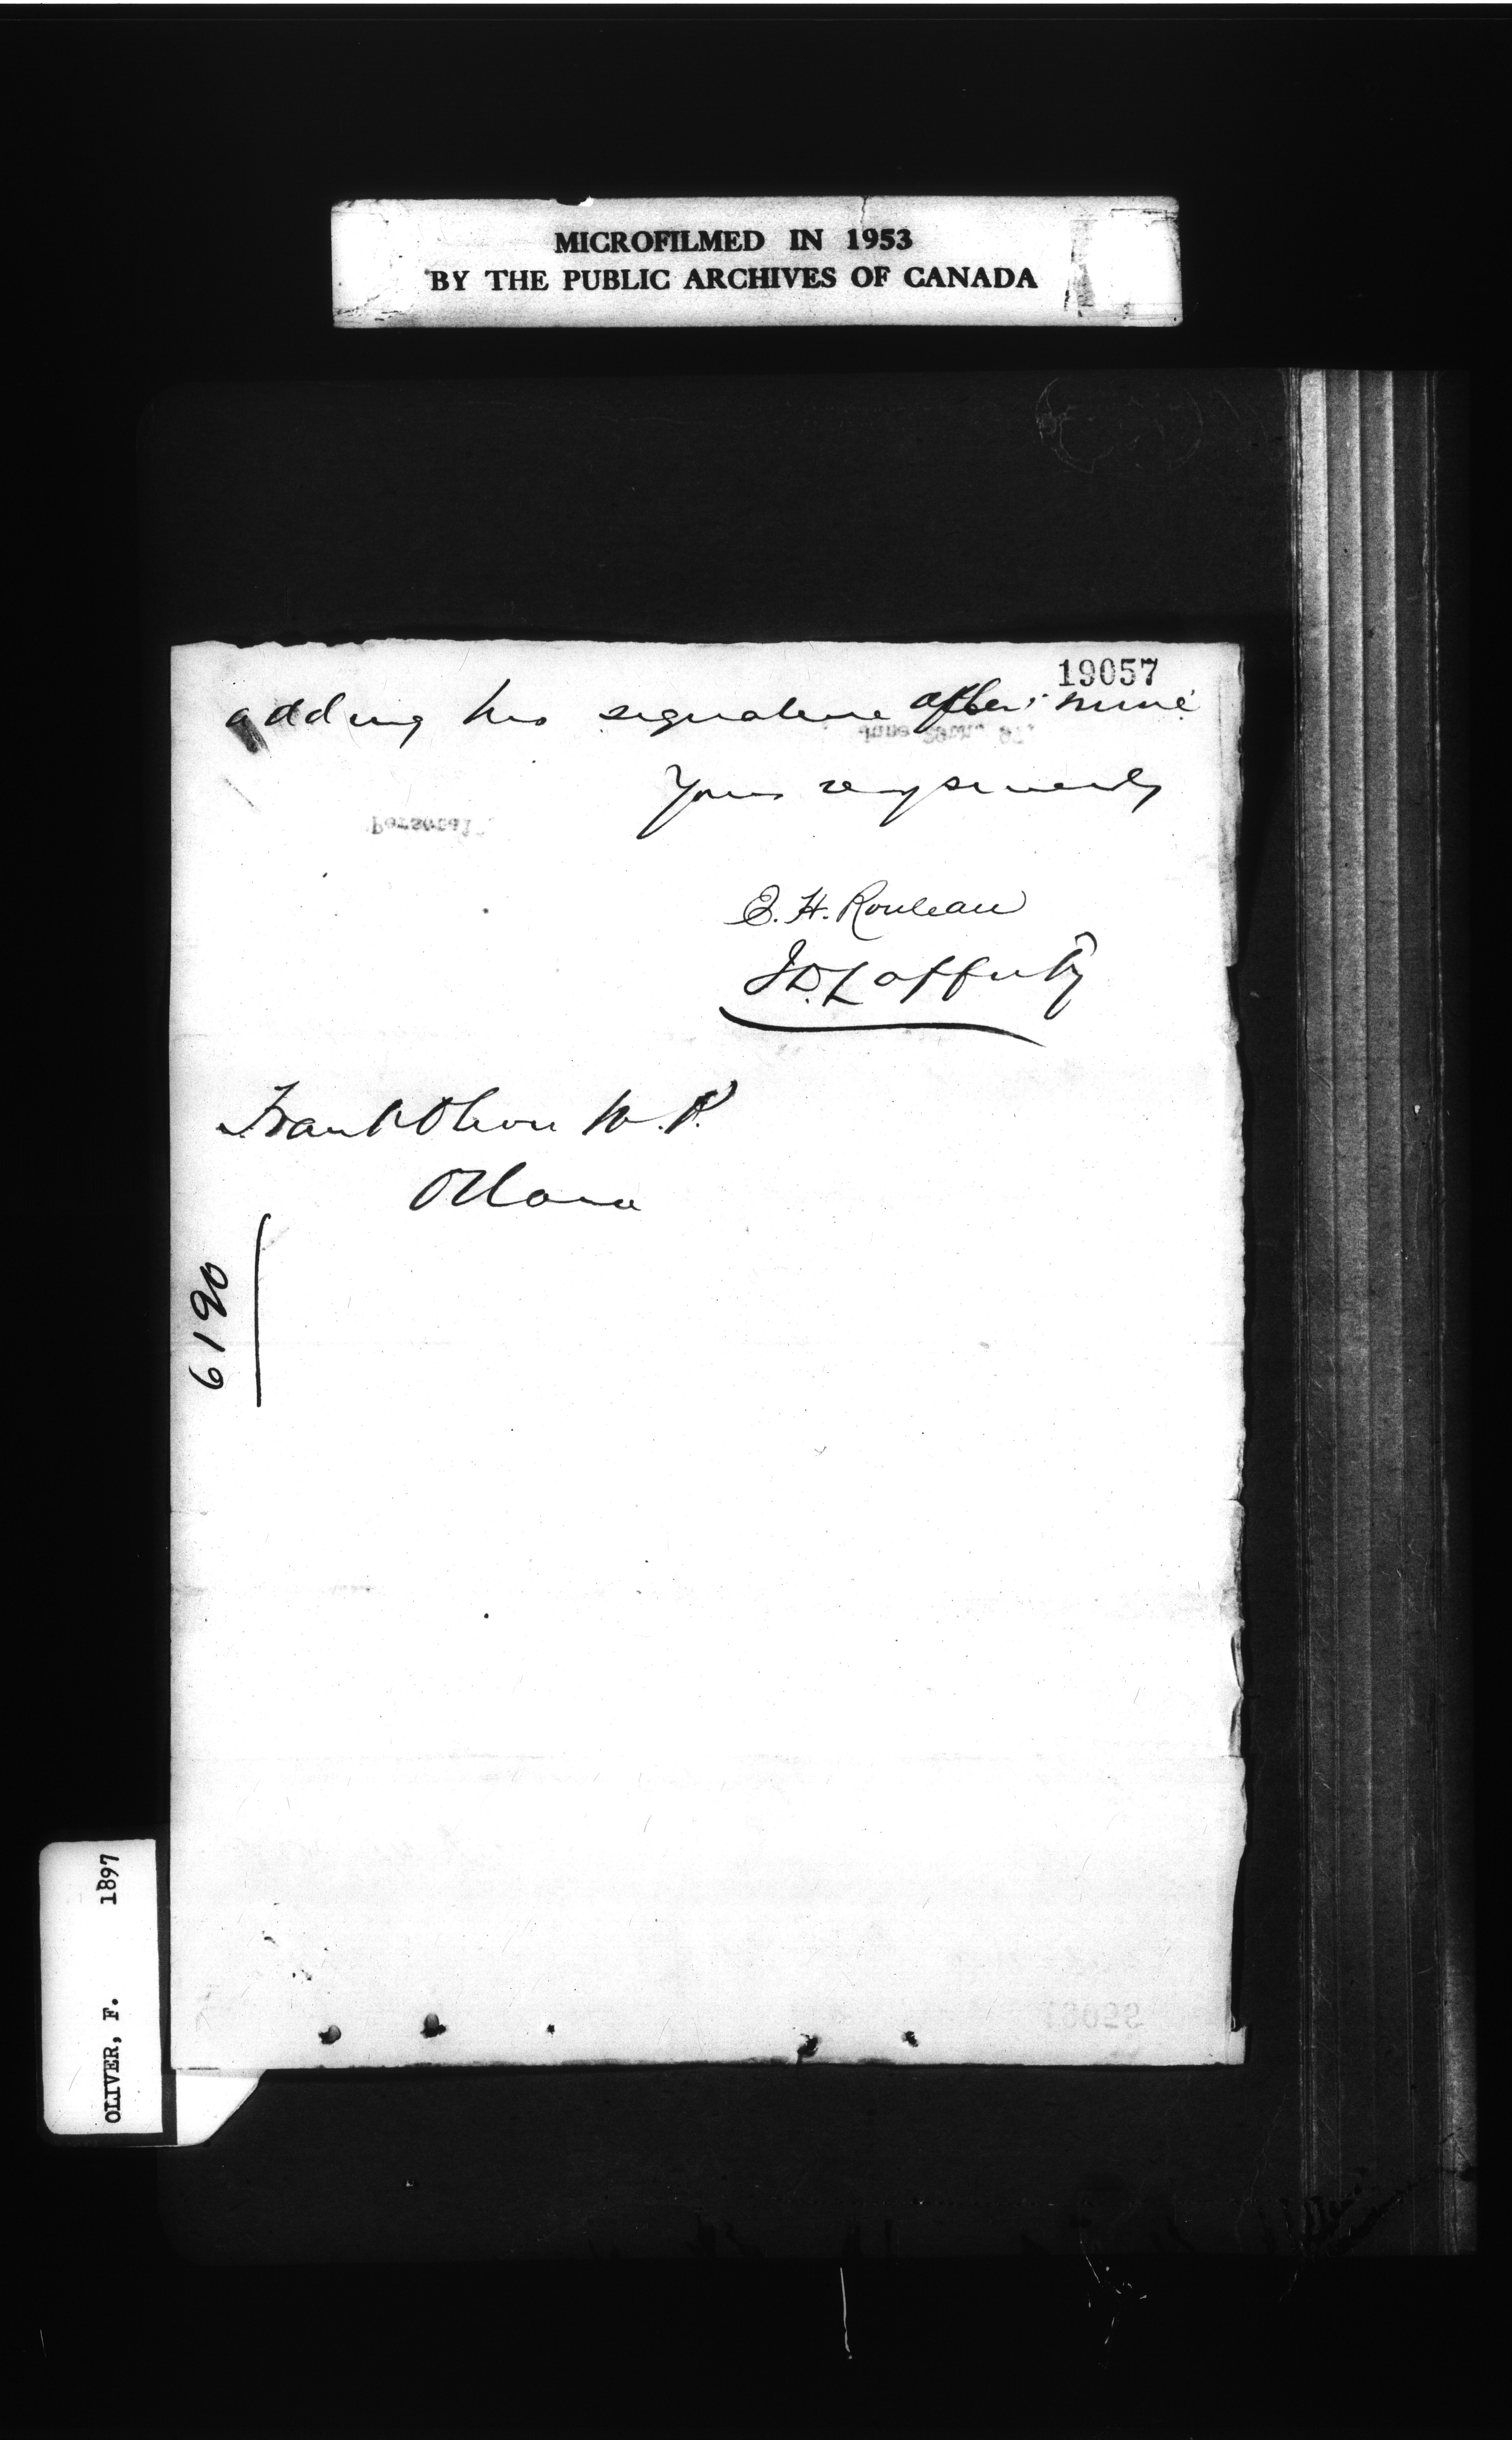 MICROFILMED IN 1953
BY THE PUBLIC ARCHIVES OF CANADA
19057
adding his signature after mine
Yours very sincerely
E. H. Rouleau
J D. Lafferty
Frank Oliver M. P.
Ottawa
6190
OLIVER, F. 1897
June 29th. 97.
Personal
19056